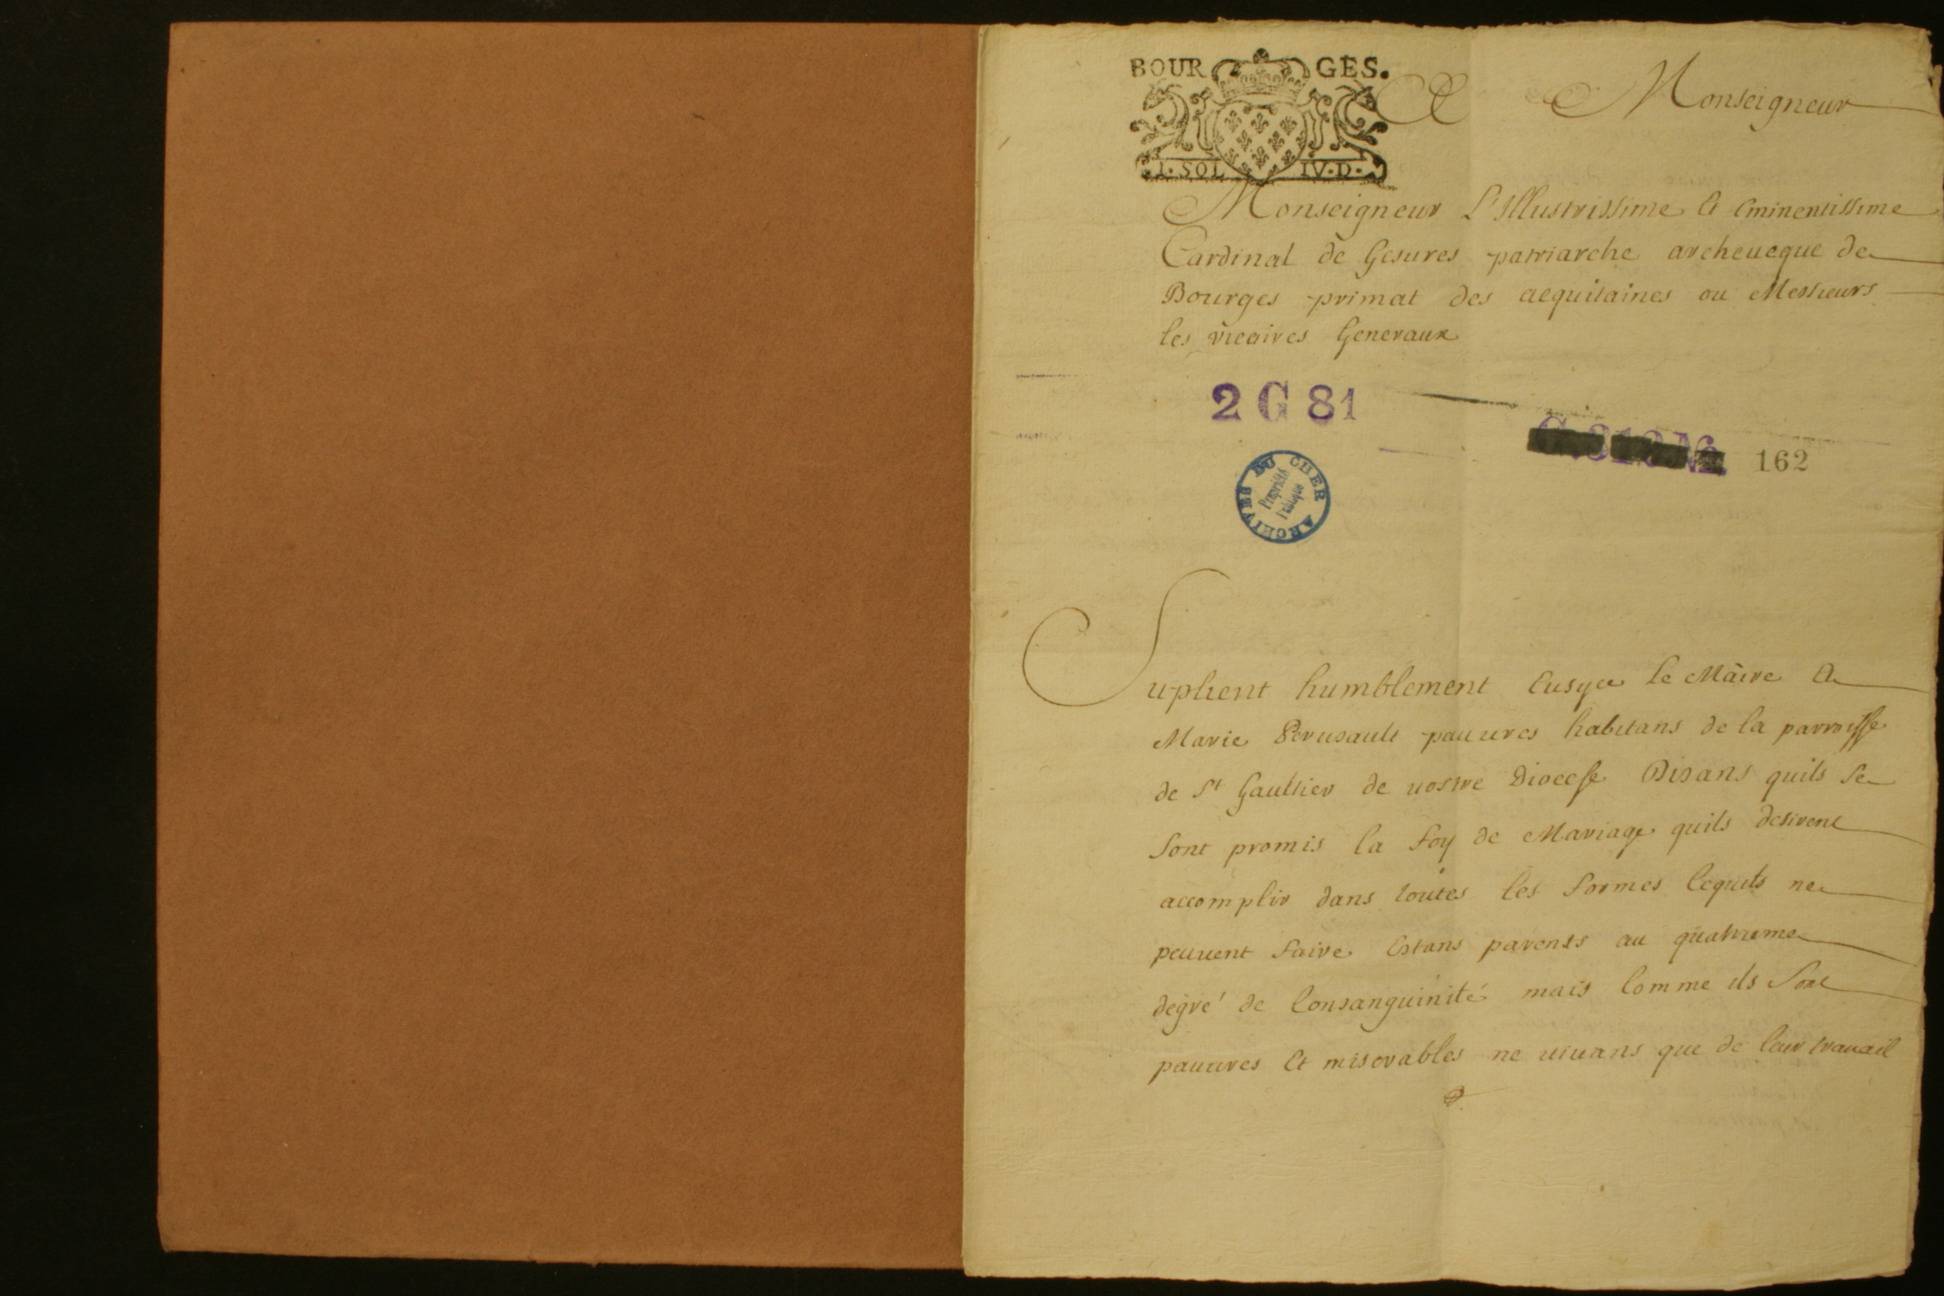 BOURGES.
A Monseigneur
I. SOL IV. D.
Monseigneur L'Illustrissime Et Eminentissime
Cardinal de Gesures patriarche archeueque de
Bourges primat des acquitaines ou Messieurs
les vicaires Generaux
2 G 81
162
ARCHIVES DU CHER
Propriété
Publique
Suplient humblement Eusyce Le Maire Et
Marie Perusault pauures habitans de la parroisse
de St Gaultier de uostre Diocese Disans quils se
sont promis la foy de Mariage quils desirent
accomplir dans toutes les formes lequils ne
peuuent faire Estans parents au quatrieme
degré de Consanguinité mais Comme ils sont
pauures Et miserables ne uiuans que de leur trauail